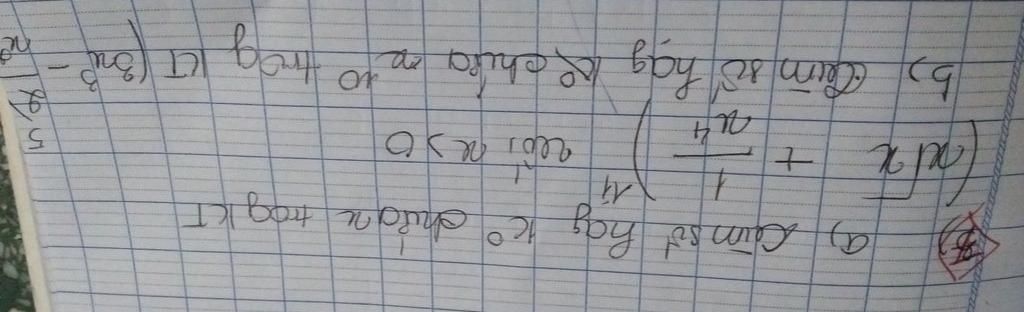 a) Tìm số hạg k° chứa x trog KT
(x√x + 1/x⁴)¹¹ với x>0
b) Tìm số hạg chứa x¹⁰ trog KT (3x³ - 2/x²)⁵